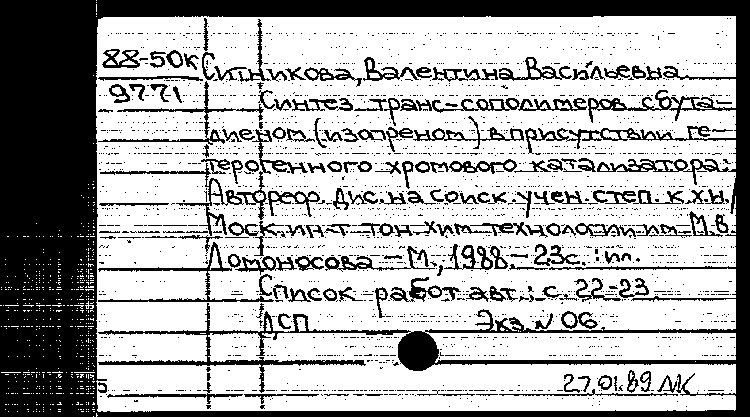 88-50к Ситникова, Валентина Васильевна
9771
Синтез транс-сополимеров с бута-
диеном (изопреном) в присутствии ге-
терогенного хромового катализатора:
Автореф. дис. на соиск. учен. степ. к.х.н./
Моск. ин-т тон. хим. технологии им. М.В.
Ломоносова - М., 1988. - 23с. : ил.
Список работ авт.: с. 22-23
ДСП. Экз. N 06.
27.01.89 МК